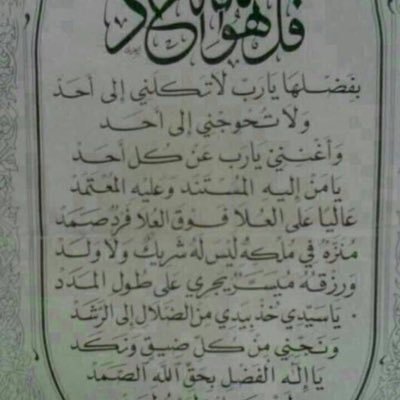 قل هو الله أحد
بفضلها يارب لا تكلني إلى أحد
ولا تحوجني إلى أحد
وأغنني يارب عن كل أحد
يا من إليه المستند وعليه المعتمد
عاليا على العلا فوق العلا فرد صمد
منزه في ملكه ليس له شريك ولا ولد
ورزقه ميسر يجري على طول المدد
يا سيدي خذ بيدي من الضلال إلى الرشد
ونجني من كل ضيق ونكد
يا إله الفضل بحق الله الصمد